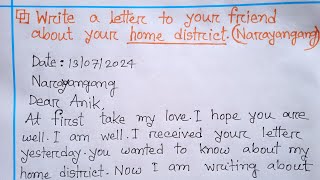 Write a letter to your friend
about your home district. (Narayangang)
Date : 13/07/2024
Narayangang
Dear Anik,
At first take my love. I hope you are
well. I am well. I received your letter
yesterday. you wanted to know about my
home district. Now I am writing about